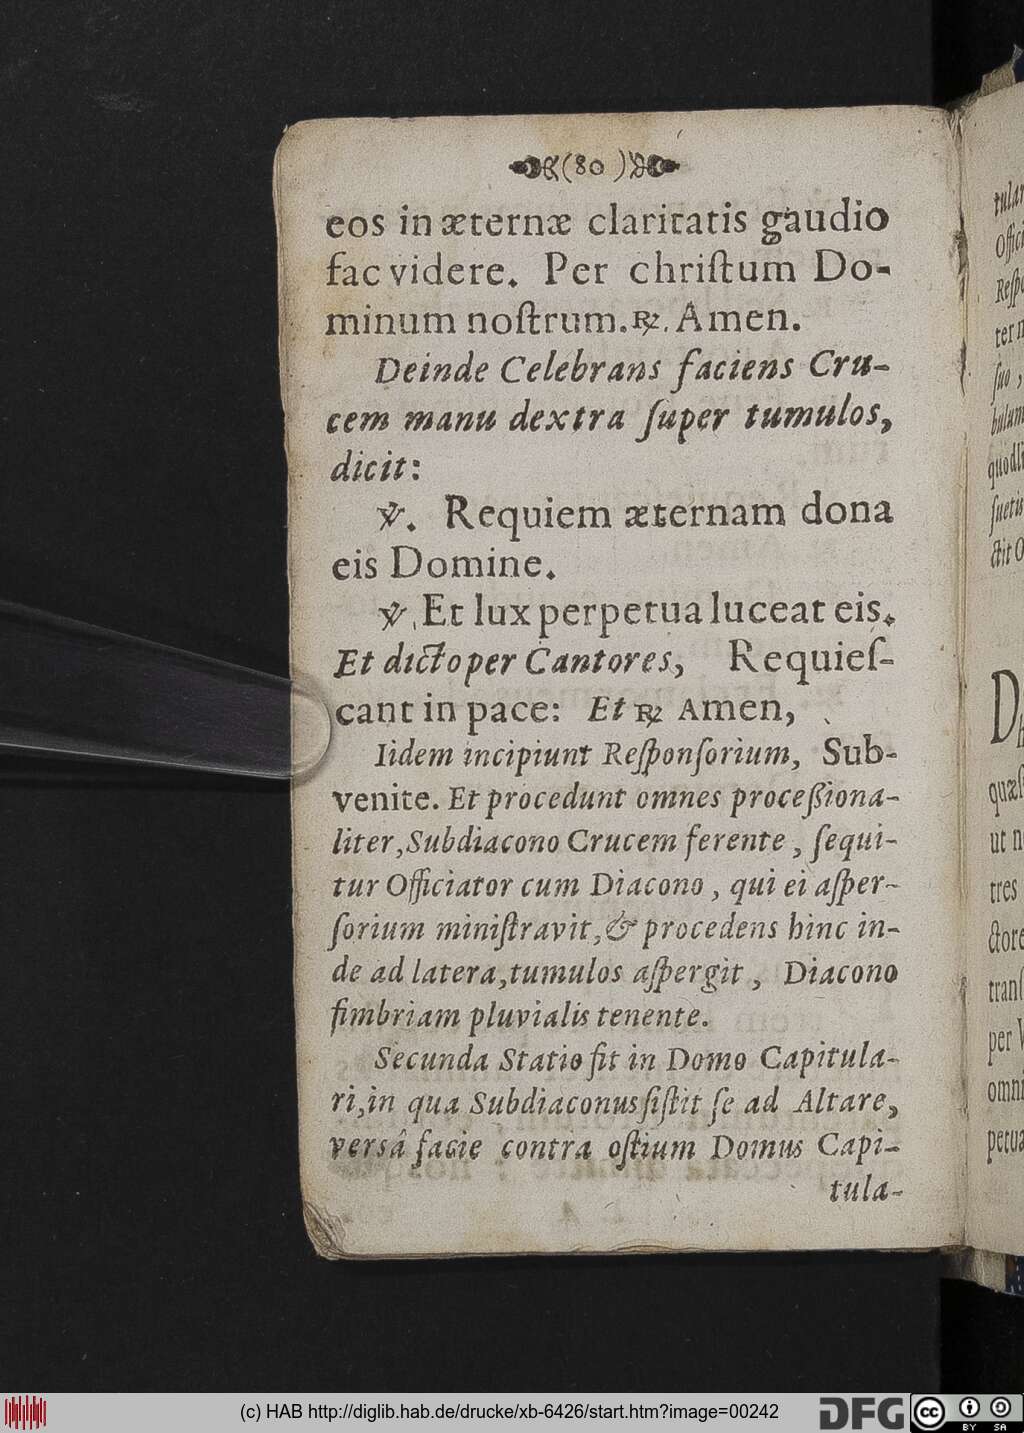 (80)
eos in æternæ claritatis gaudio
fac videre. Per chriſtum Do-
minum noſtrum. ℟. Amen.
Deinde Celebrans faciens Cru-
cem manu dextra ſuper tumulos,
dicit:
℣. Requiem æternam dona
eis Domine.
℣. Et lux perpetua luceat eis.
Et dicto per Cantores, Requieſ-
cant in pace: Et ℟ Amen,
Iidem incipiunt Reſponſorium, Sub-
venite. Et procedunt omnes proceßiona-
liter, Subdiacono Crucem ferente, ſequi-
tur Officiator cum Diacono, qui ei aſper-
ſorium miniſtravit, & procedens hinc in-
de ad latera, tumulos aſpergit, Diacono
fimbriam pluvialis tenente.
Secunda Statio fit in Domo Capitula-
ri, in qua Subdiaconus ſiſtit ſe ad Altare,
versâ facie contra oſtium Domus Capi-
tula-
ter
ſuo,
ut
tres
per
omni
(c) HAB http://diglib.hab.de/drucke/xb-6426/start.htm?image=00242
DFG
cc
BY SA